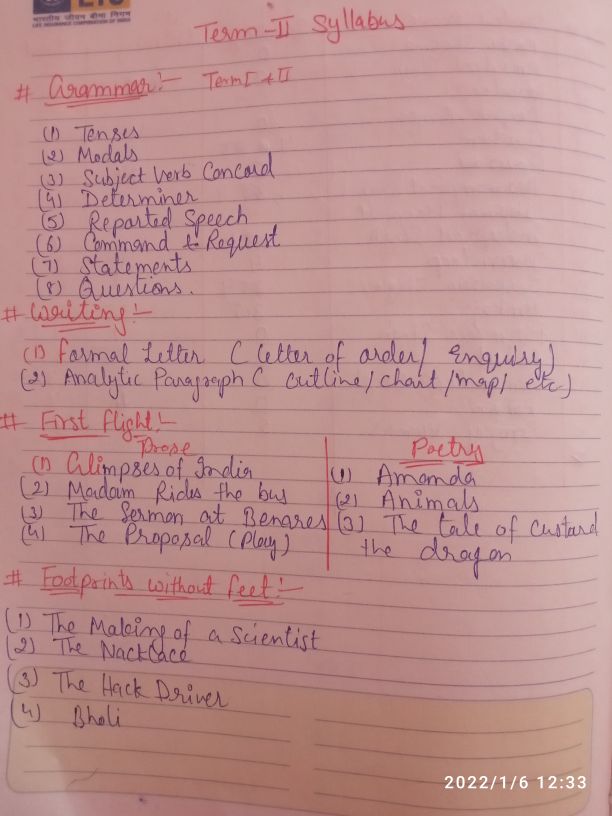 भारतीय जीवन बीमा निगम
LIFE INSURANCE CORPORATION OF INDIA
Term-II Syllabus
# Grammar:- Term I + II
(1) Tenses
(2) Modals
(3) Subject Verb Concord
(4) Determiner
(5) Reported Speech
(6) Command & Request
(7) Statements
(8) Questions.
# Writing:-
(1) Formal Letter (Letter of order/ Enquiry)
(2) Analytic Paragraph ( outline/chart/map/ etc)
# First flight:-
Prose
(1) Glimpses of India
(2) Madam Rides the bus
(3) The Sermon at Benares
(4) The Proposal (Play)
Poetry
(1) Amanda
(2) Animals
(3) The tale of custard
the dragon
# Footprints without feet:-
(1) The Making of a Scientist
(2) The Nacklace
(3) The Hack Driver
(4) Bholi
2022/1/6 12:33